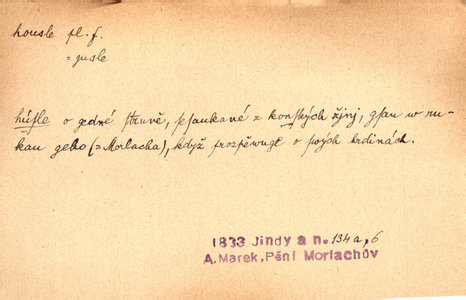 housle pl. f.
= gusle
húsle o gedné struně, spjaukané z konských žjnj, gsau w ru-
kau geho (= Morlacha), když prozpěwuge o swých hrdinách.
1833 Jindy a n. 134 a, b
A. Marek, Pění Morlachův